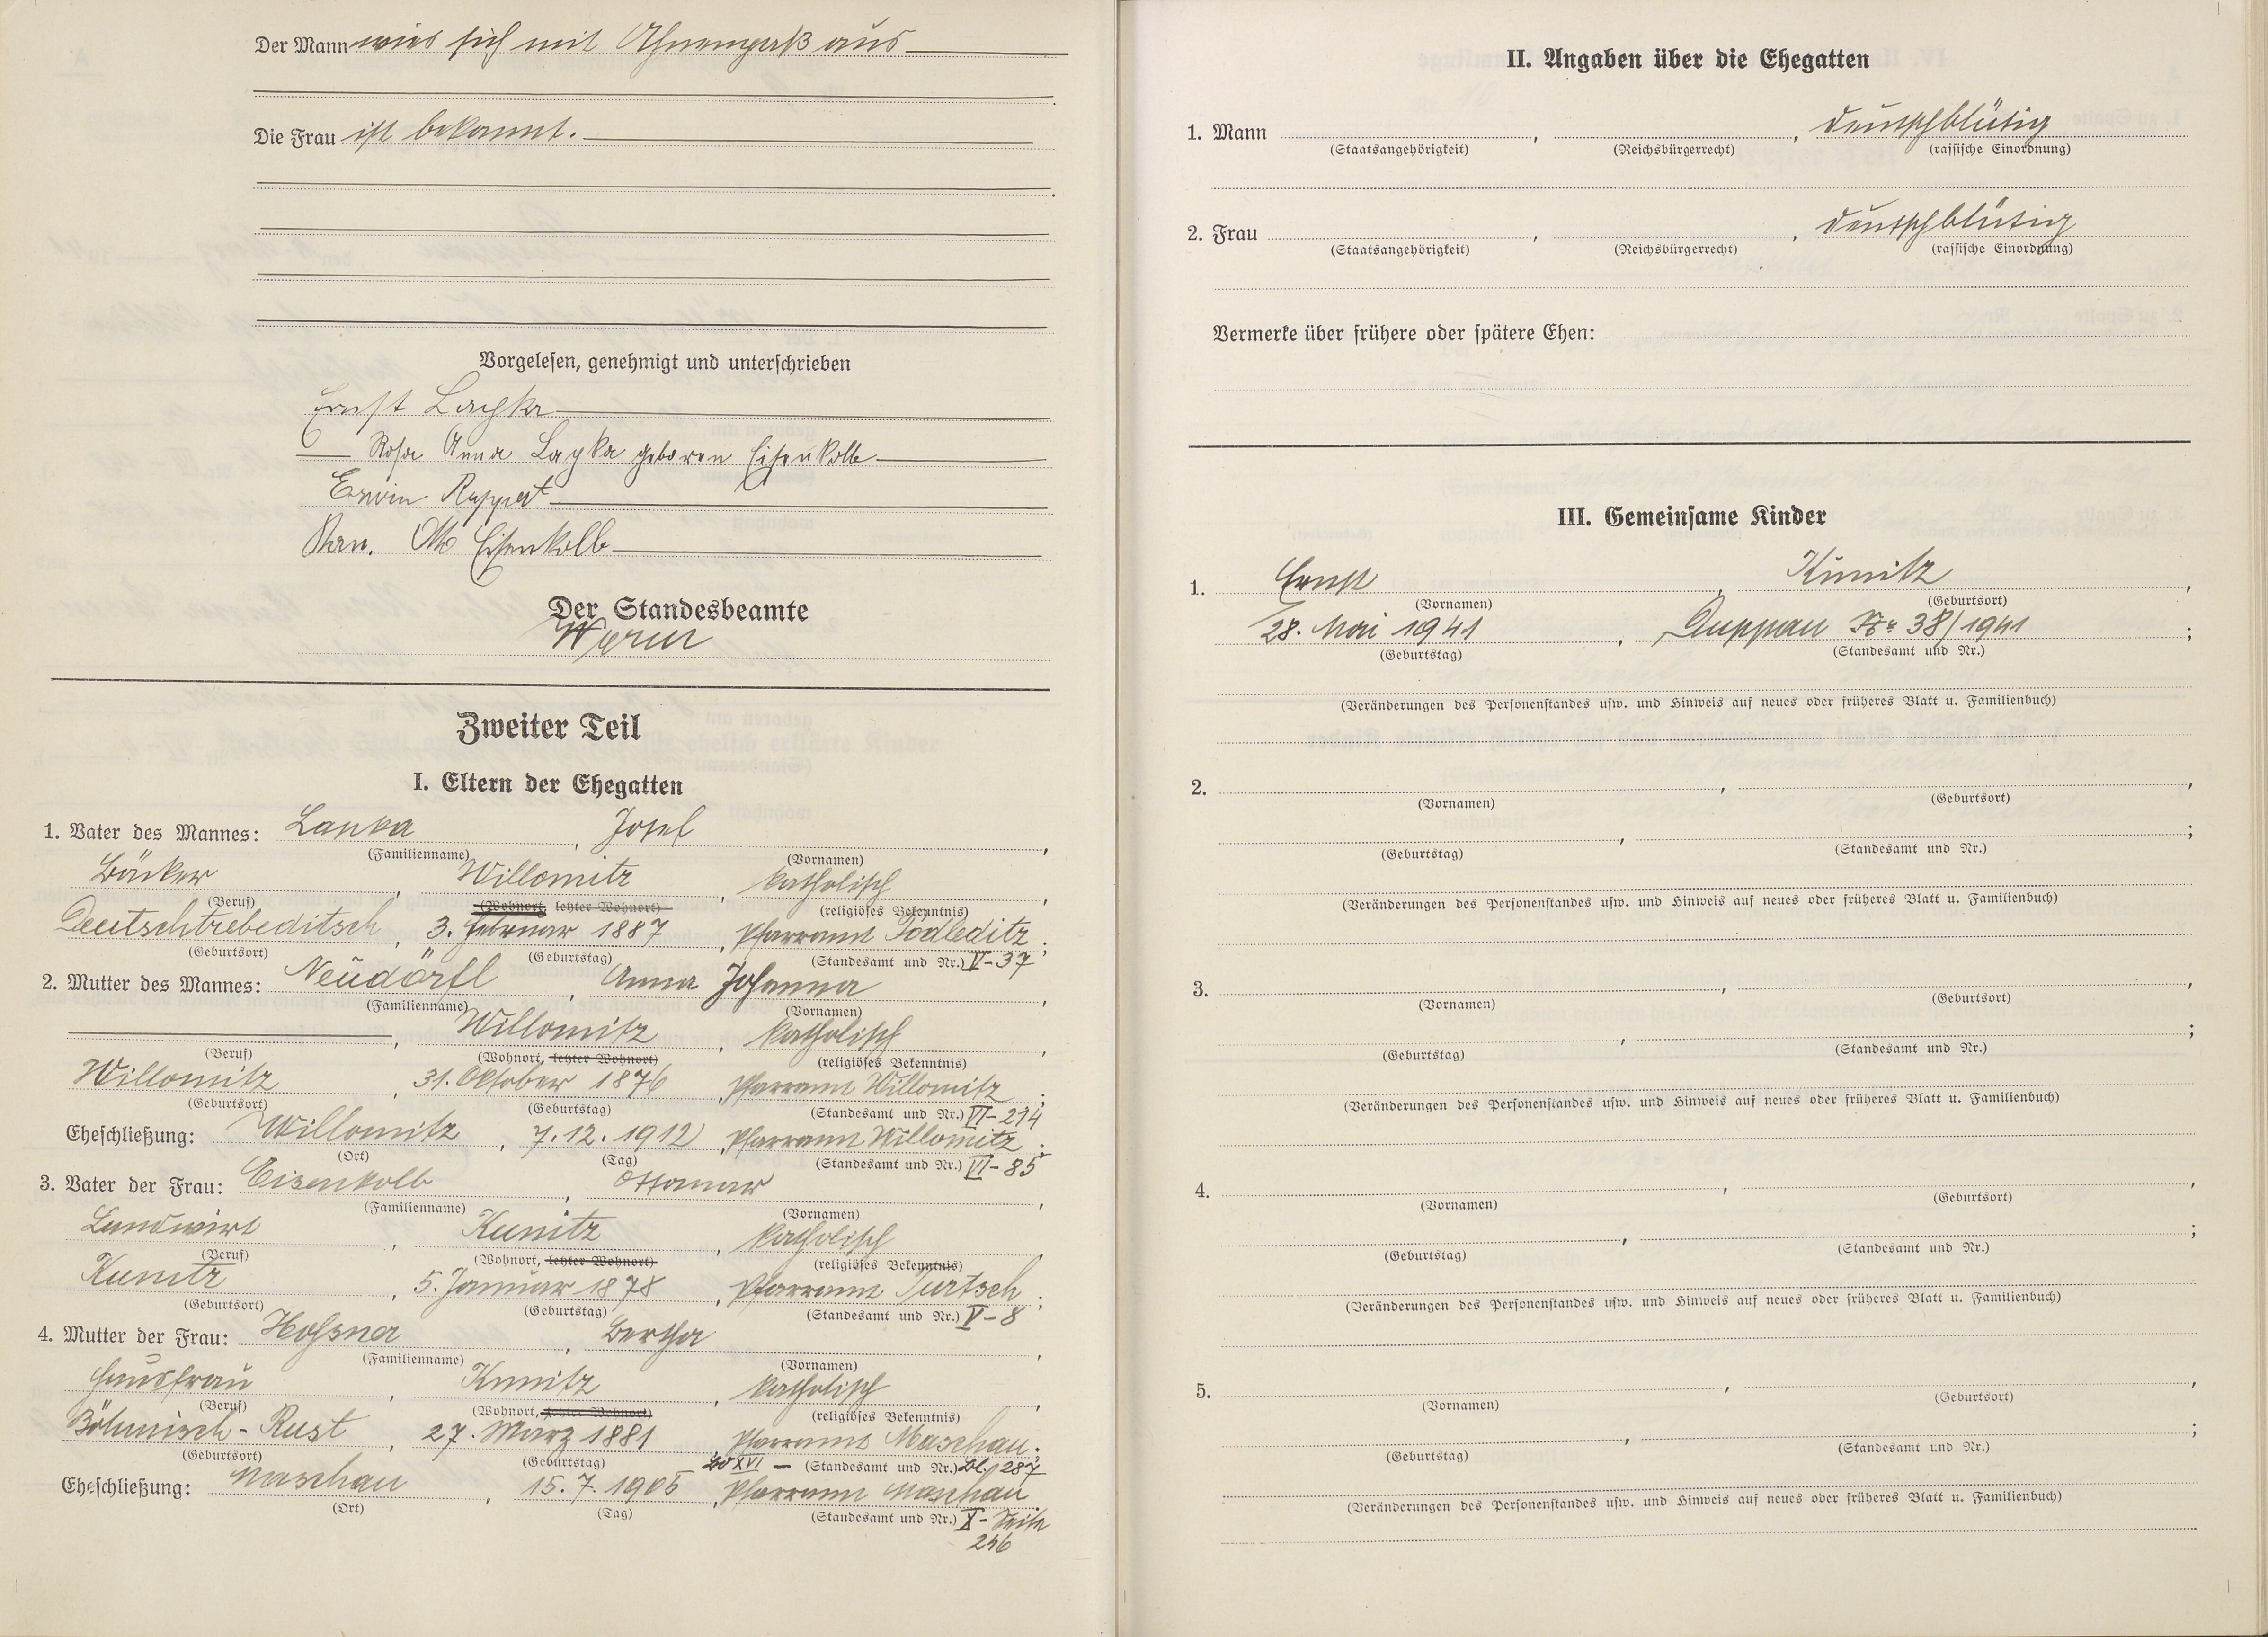 Der Mann wies sich mit Ahnenpaß aus
Die Frau ist bekannt.
Vorgelesen, genehmigt und unterschrieben
Ernst Lapka
Rosa Anna Lapka geboren Eisenkolb
Erwin Ruppert
Otto Eisenkolb
Der Standesbeamte
Zweiter Teil
I. Eltern der Ehegatten
1. Vater des Mannes: Lapka, Josef,
(Familienname) (Vornamen)
Bäcker, Willomitz, katholisch,
(Beruf) (Wohnort, letzter Wohnort) (religiöses Bekenntnis)
Deutschtrebeditsch, 3. Februar 1887, Pfarramt Podleditz;
(Geburtsort) (Geburtstag) (Standesamt und Nr.) V-37
2. Mutter des Mannes: Neudörfl, Anna Johanna,
(Familienname) (Vornamen)
Willomitz, katholisch,
(Beruf) (Wohnort, letzter Wohnort) (religiöses Bekenntnis)
Willomitz, 31. Oktober 1876, Pfarramt Willomitz;
(Geburtsort) (Geburtstag) (Standesamt und Nr.) VI-214
Eheschließung: Willomitz, 7.12.1912, Pfarramt Willomitz;
(Ort) (Tag) (Standesamt und Nr.) VI-85
3. Vater der Frau: Eisenkolb, Ottomar,
(Familienname) (Vornamen)
Landwirt, Kunitz, katholisch,
(Beruf) (Wohnort, letzter Wohnort) (religiöses Bekenntnis)
Kunitz, 5. Januar 1878, Pfarramt Turtsch;
(Geburtsort) (Geburtstag) (Standesamt und Nr.) V-8
4. Mutter der Frau: Hossner, Bertha,
(Familienname) (Vornamen)
Hausfrau, Kunitz, katholisch,
(Beruf) (Wohnort, letzter Wohnort) (religiöses Bekenntnis)
Böhmisch-Rust, 27. März 1881, Pfarramt Maschau;
(Geburtsort) (Geburtstag) Bd XVI - (Standesamt und Nr.) Bl. 287
Eheschließung: Maschau, 15.7.1905, Pfarramt Maschau
(Ort) (Tag) (Standesamt und Nr.) X-Seite
246
II. Angaben über die Ehegatten
1. Mann , , deutschblütig
(Staatsangehörigkeit) (Reichsbürgerrecht) (rassische Einordnung)
2. Frau , , deutschblütig
(Staatsangehörigkeit) (Reichsbürgerrecht) (rassische Einordnung)
Vermerke über frühere oder spätere Ehen:
III. Gemeinsame Kinder
1. Ernst, Kunitz,
(Vornamen) (Geburtsort)
28. Mai 1941, Duppau Nr. 38/1941;
(Geburtstag) (Standesamt und Nr.)
(Veränderungen des Personenstandes usw. und Hinweis auf neues oder früheres Blatt u. Familienbuch)
2. , ,
(Vornamen) (Geburtsort)
, ;
(Geburtstag) (Standesamt und Nr.)
(Veränderungen des Personenstandes usw. und Hinweis auf neues oder früheres Blatt u. Familienbuch)
3. , ,
(Vornamen) (Geburtsort)
, ;
(Geburtstag) (Standesamt und Nr.)
(Veränderungen des Personenstandes usw. und Hinweis auf neues oder früheres Blatt u. Familienbuch)
4. , ,
(Vornamen) (Geburtsort)
, ;
(Geburtstag) (Standesamt und Nr.)
(Veränderungen des Personenstandes usw. und Hinweis auf neues oder früheres Blatt u. Familienbuch)
5. , ,
(Vornamen) (Geburtsort)
, ;
(Geburtstag) (Standesamt und Nr.)
(Veränderungen des Personenstandes usw. und Hinweis auf neues oder früheres Blatt u. Familienbuch)